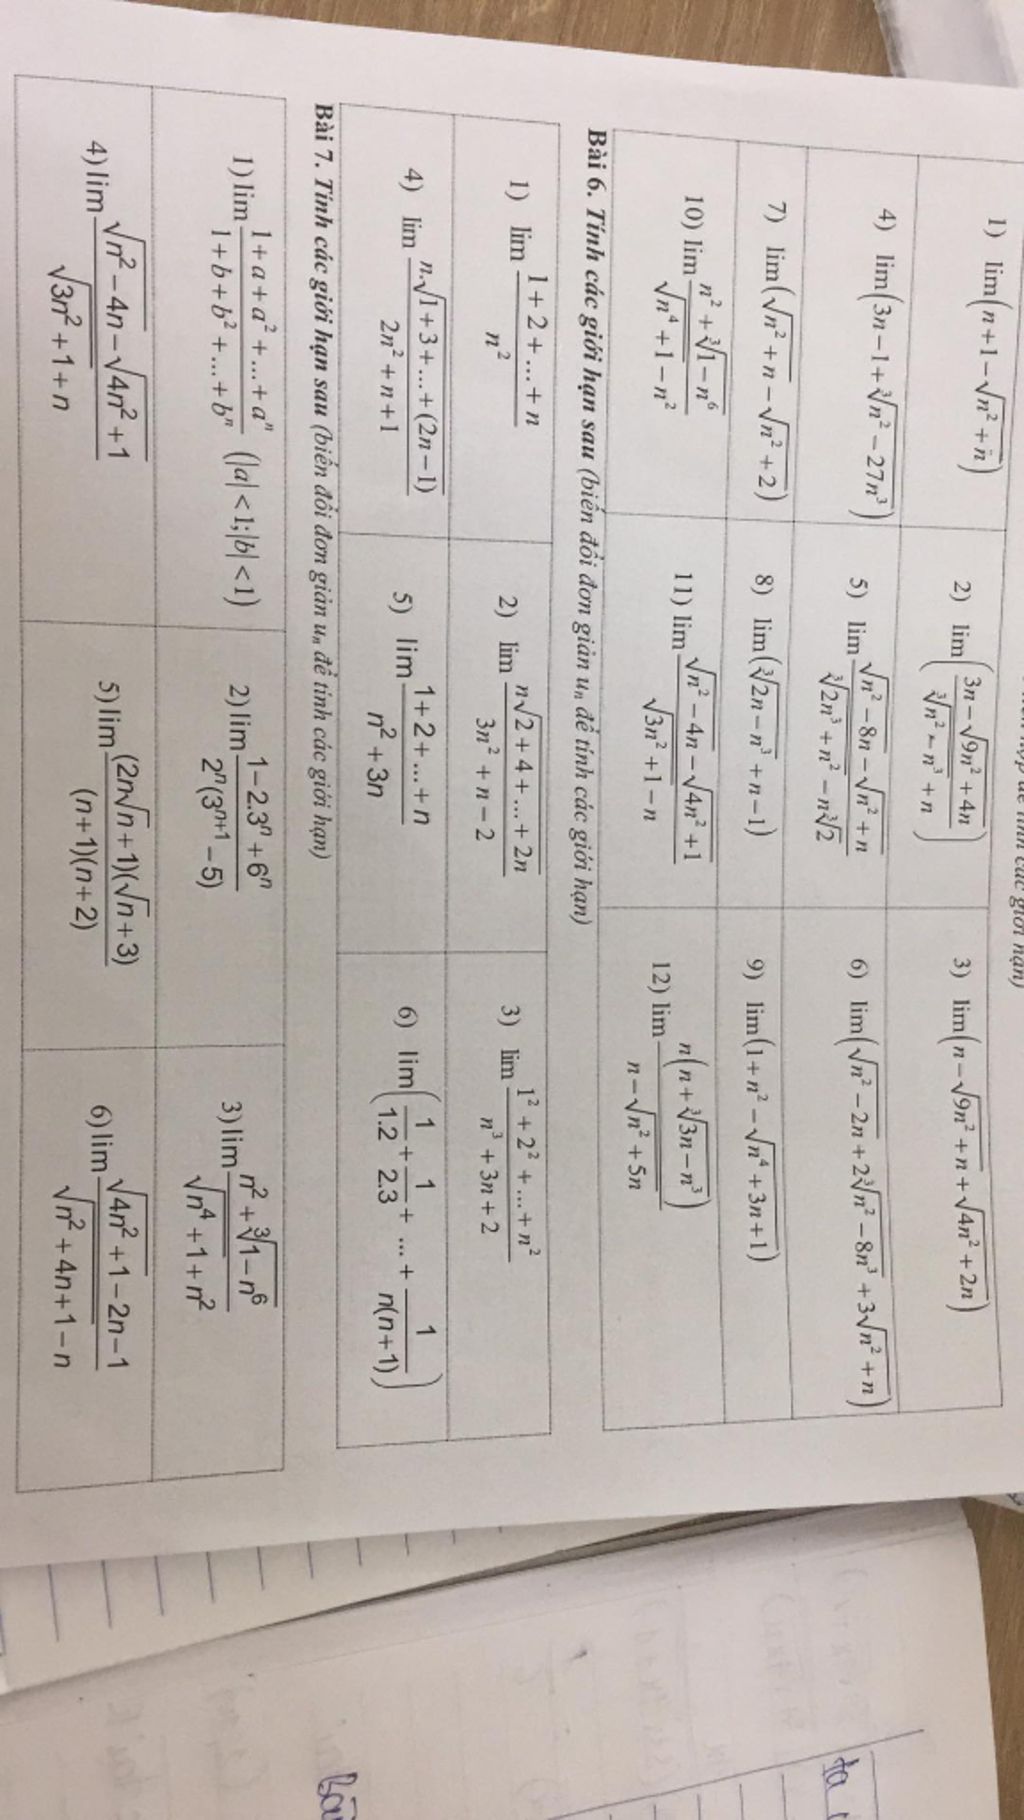 để tính các giới hạn)
1) lim(n+1−√(n²+n))
2) lim((3n−√(9n²+4n))/(∛(n²−n³)+n))
3) lim(n−√(9n²+n)+√(4n²+2n))
4) lim(3n−1+∛(n²−27n³))
5) lim (√(n²−8n)−√(n²+n))/(∛(2n³+n²)−n∛2)
6) lim(√(n²−2n)+2∛(n²−8n³)+3√(n²+n))
7) lim(√(n²+n)−√(n²+2))
8) lim(∛(2n−n³)+n−1)
9) lim(1+n²−√(n⁴+3n+1))
10) lim (n²+∛(1−n⁶))/(√(n⁴+1)−n²)
11) lim (√(n²−4n)−√(4n²+1))/(√(3n²+1)−n)
12) lim (n(n+∛(3n−n³)))/(n−√(n²+5n))
Bài 6. Tính các giới hạn sau (biến đổi đơn giản uₙ để tính các giới hạn)
1) lim (1+2+...+n)/n²
2) lim (n√(2+4+...+2n))/(3n²+n−2)
3) lim (1²+2²+...+n²)/(n³+3n+2)
4) lim (n.√(1+3+...+(2n−1)))/(2n²+n+1)
5) lim (1+2+...+n)/(n²+3n)
6) lim(1/1.2+1/2.3+...+1/n(n+1))
Bài 7. Tính các giới hạn sau (biến đổi đơn giản uₙ để tính các giới hạn)
1) lim (1+a+a²+...+aⁿ)/(1+b+b²+...+bⁿ) (|a|<1;|b|<1)
2) lim (1−2.3ⁿ+6ⁿ)/(2ⁿ(3ⁿ⁺¹−5))
3) lim (n²+∛(1−n⁶))/(√(n⁴+1)+n²)
4) lim (√(n²−4n)−√(4n²+1))/(√(3n²+1)+n)
5) lim ((2n√n+1)(√n+3))/((n+1)(n+2))
6) lim (√(4n²+1)−2n−1)/(√(n²+4n+1)−n)
ta
Bài